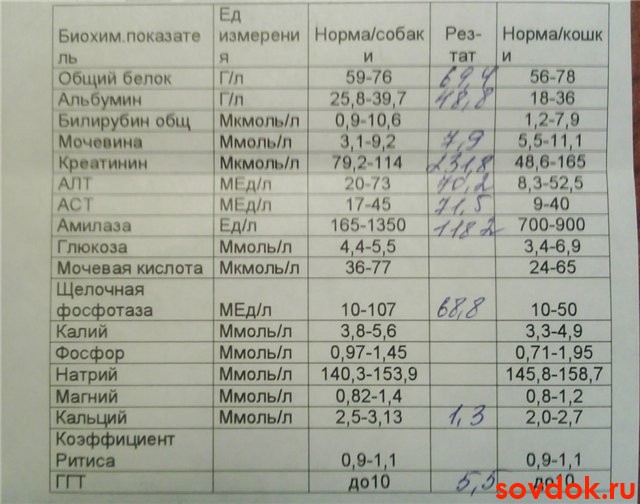 Биохим.показате ль Ед измерени я Норма/собак и Рез- тат Норма/кошк и
Общий белок Г/л 59-76 69,4 56-78
Альбумин Г/л 25,8-39,7 48,8 18-36
Билирубин общ Мкмоль/л 0,9-10,6 1,2-7,9
Мочевина Ммоль/л 3,1-9,2 7,9 5,5-11,1
Креатинин Мкмоль/л 79,2-114 231,8 48,6-165
АЛТ МЕд/л 20-73 70,2 8,3-52,5
АСТ МЕд/л 17-45 71,5 9-40
Амилаза Ед/л 165-1350 1182 700-900
Глюкоза Ммоль/л 4,4-5,5 3,4-6,9
Мочевая кислота Мкмоль/л 36-77 24-65
Щелочная
фосфотаза МЕд/л 10-107 68,8 10-50
Калий Ммоль/л 3,8-5,6 3,3-4,9
Фосфор Ммоль/л 0,97-1,45 0,71-1,95
Натрий Ммоль/л 140,3-153,9 145,8-158,7
Магний Ммоль/л 0,82-1,4 0,8-1,2
Кальций Ммоль/л 2,5-3,13 1,3 2,0-2,7
Коэффициент
Ритиса 0,9-1,1 0,9-1,1
ГГТ до10 5,5 до10
sovdok.ru